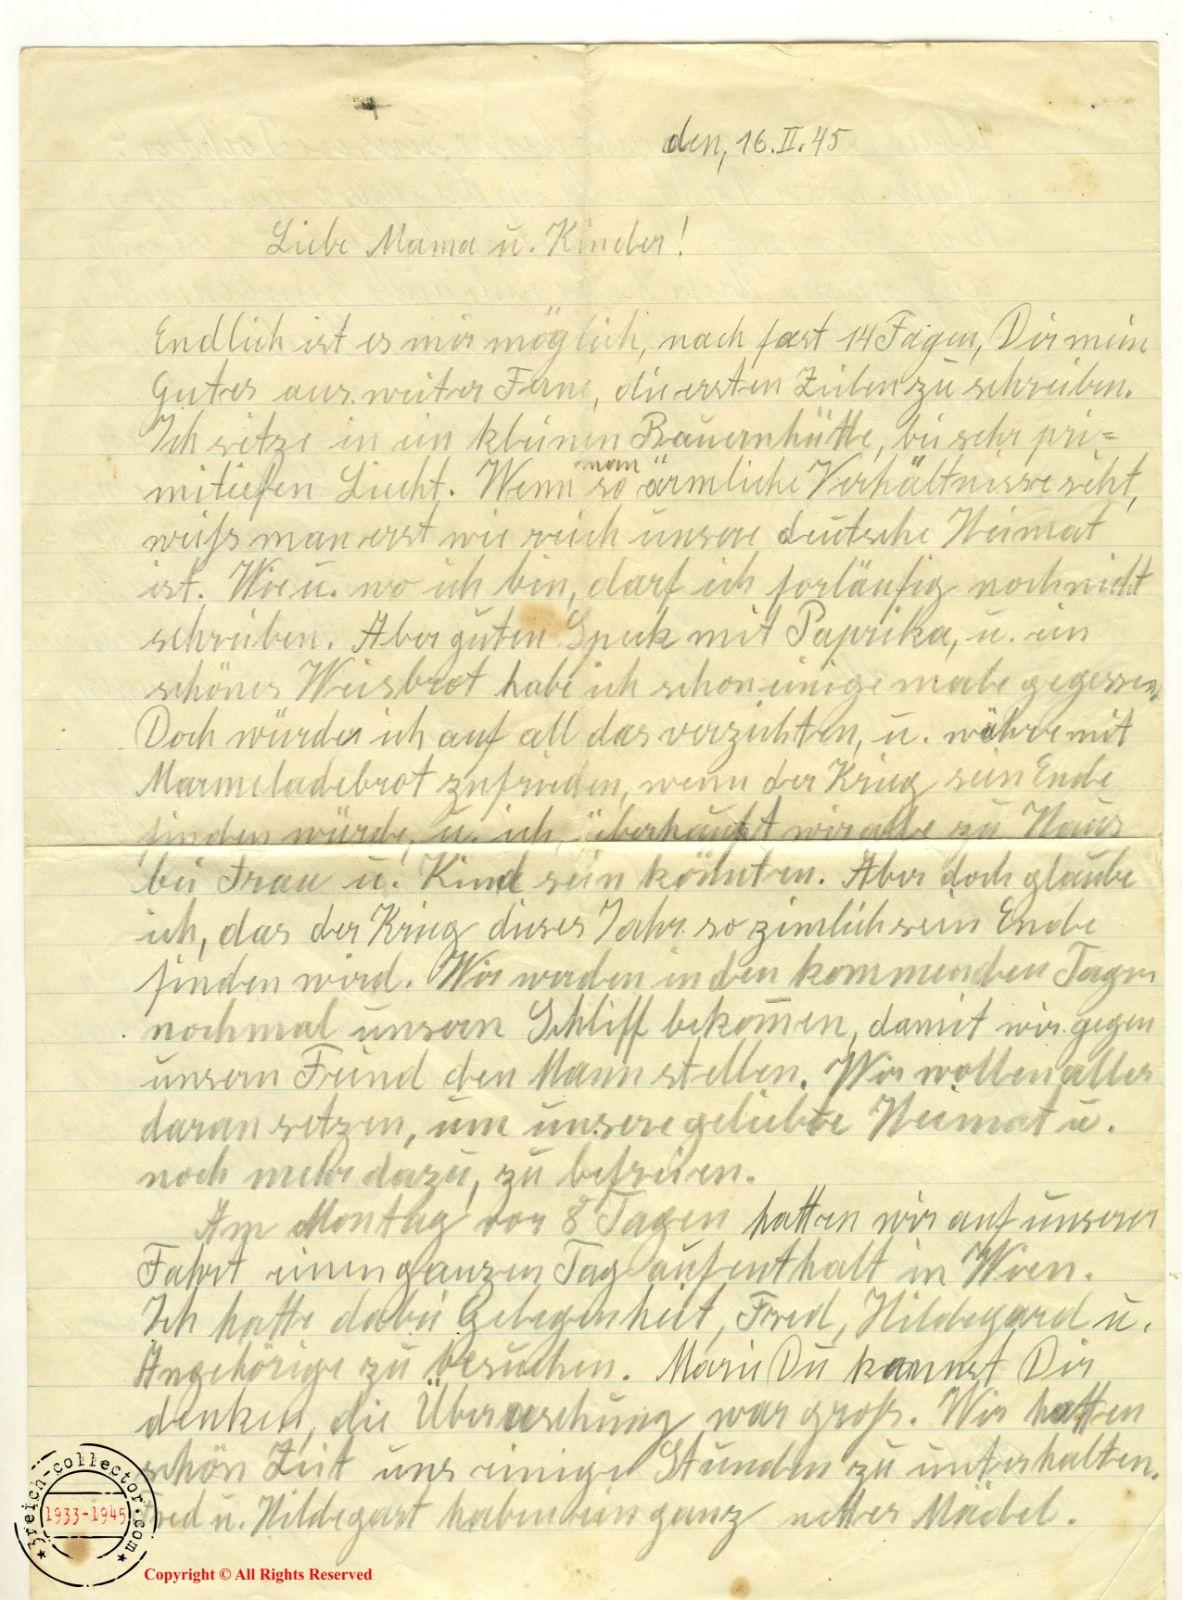 den, 16.II.45
Liebe Mama u. Kinder!
Endlich ist es mir möglich, nach fast 14 Tagen, Dir mein
Gutes aus weiter Ferne, die ersten Zeilen zu schreiben.
Ich sitze in ein kleinen Bauernhütte, bei sehr pri=
mitiefen Licht. Wenn man so ärmliche Verhältnisse seht,
weiß man erst wie reich unsere deutsche Heimat
ist. Wie u. wo ich bin, darf ich forläufig noch nicht
schreiben. Aber guten Speck mit Paprika, u. ein
schönes Weisbrot habe ich schon einige male gegessen.
Doch würde ich auf all das verzichten, u. währe mit
Marmeladebrot zufrieden, wenn der Krieg sein Ende
finden würde, u. ich, überhaupt wir alle zu Haus
bei Frau u. Kind sein könnten. Aber doch glaube
ich, das der Krieg dieses Jahr so zimlich sein Ende
finden wird. Wir werden in den kommenden Tagen
nochmal unsern Schliff bekom̄en, damit wir gegen
unsern Feind den Mann stellen. Wir wollen alles
daran setzen, um unsere geliebte Heimat u.
noch mehr dazu, zu befreien.
Am Montag vor 8 Tagen hatten wir auf unserer
Fahrt einen ganzen Tag aufenthalt in Wien.
Ich hatte dabei Gelegenheit, Fred, Hildegard u.
Angehörige zu besuchen. Marie Du kannst Dir
denken, die Überaschung war groß. Wir hatten
schön Zeit uns einige Stunden zu unterhalten.
Fred u. Hildegart haben ein ganz nettes Mädel.
3reich-collector.com
1933-1945
Copyright © All Rights Reserved